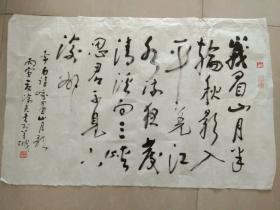 峩眉山月半
輪秋影入
平羌江
水流夜發
清溪向三峽
思君不見下
渝州
李白詩峨眉山月歌
丙寅